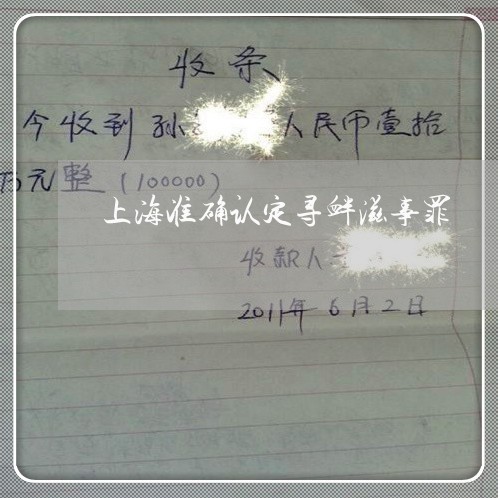 收条
今收到孙 人民币壹拾
万元整(100000)
上海准确认定寻衅滋事罪
收款人
2011年6月2日